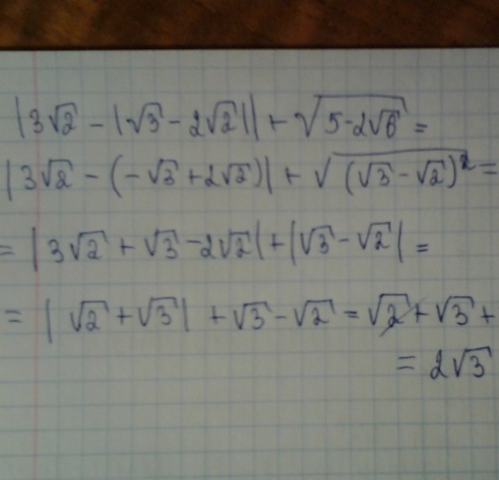 |3√2 - |√3 - 2√2|| + √(5-2√6) =
|3√2 - (-√3 + 2√2)| + √((√3 - √2)²) =
= |3√2 + √3 - 2√2| + |√3 - √2| =
= |√2 + √3| + √3 - √2 = √2 + √3 +
= 2√3